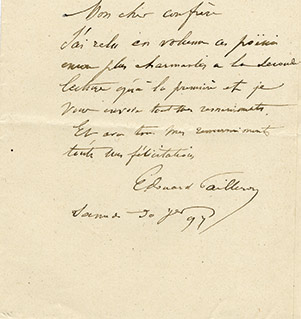 Mon cher confrère
J'ai relu en volume ces poésies
encore plus charmantes à la seconde
lecture qu'à la première et je
vous envoie tous mes remerciements.
Et avec tous mes remerciements
toutes mes félicitations
Edouard Pailleron
Samedi 30 9bre 97